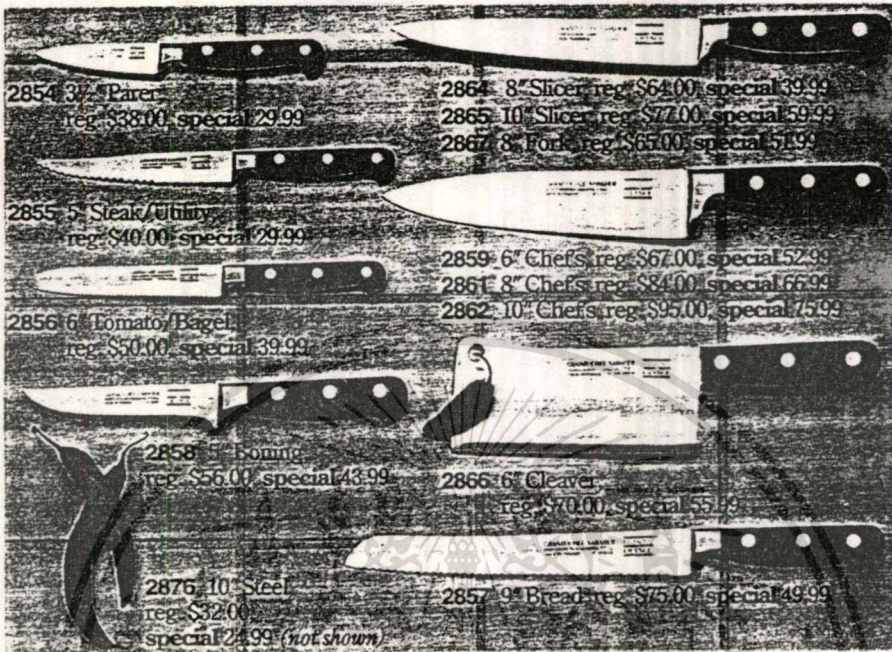 2854 3½" Parer,
reg. $38.00, special 29.99
2855 5" Steak/Utility,
reg. $40.00, special 29.99
2856 6" Tomato/Bagel,
reg. $50.00, special 39.99
2858 5" Boning,
reg. $56.00, special 43.99
2876 10" Steel
reg. $32.00
special 24.99 (not shown)
2864 8" Slicer, reg. $64.00, special 39.99
2865 10" Slicer, reg. $77.00, special 59.99
2867 8" Fork, reg. $65.00, special 51.99
2859 6" Chef's, reg. $67.00, special 52.99
2861 8" Chef's, reg. $84.00, special 66.99
2862 10" Chef's, reg. $95.00, special 75.99
2866 6" Cleaver,
reg. $70.00, special 55.99
2857 9" Bread, reg. $75.00, special 49.99